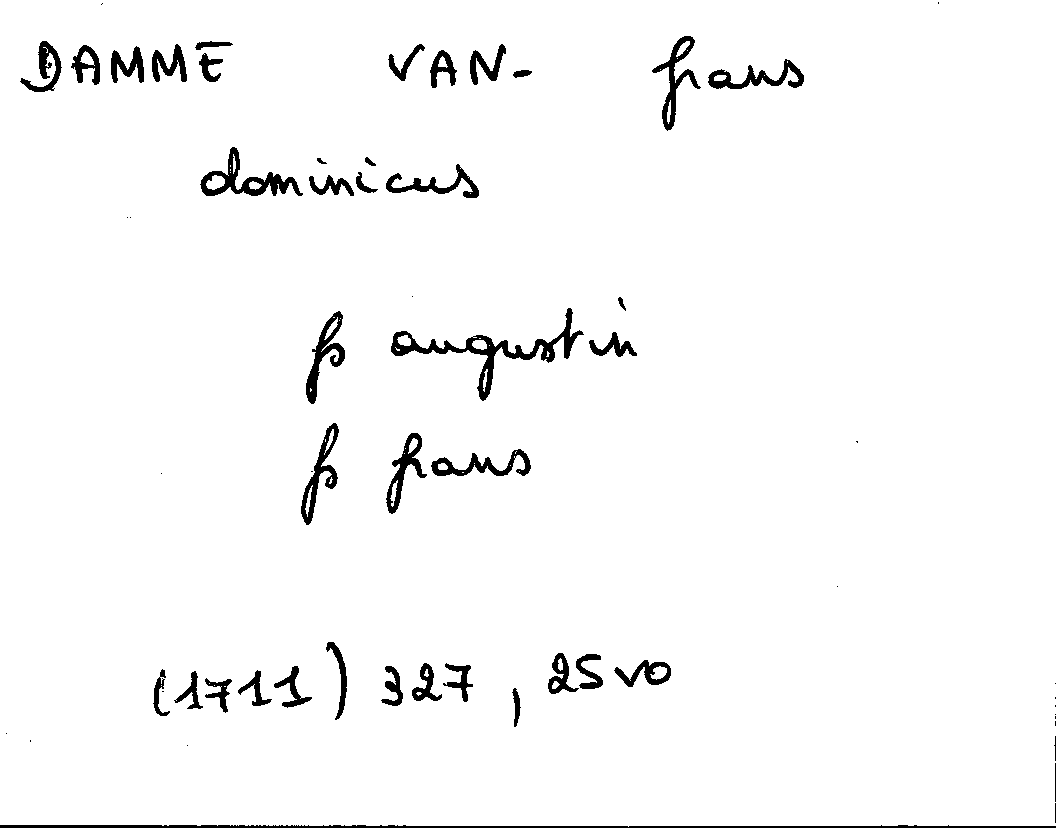 DAMME VAN- frans
dominicus
fs augustin
fs frans
(1711) 327, 25vo